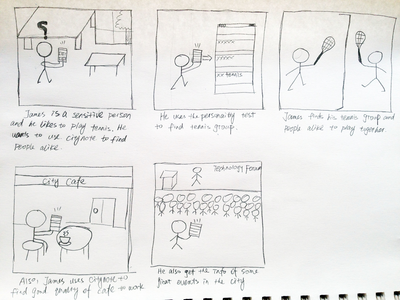 ?
xx tennis
James is a sensitive person
and he likes to play tennis. He
wants to use citynote to find
People alike.
He uses the personality test
to find tennis group.
James finds his tennis group and
People alike to play together.
City Cafe
Also, James uses citynote to
find good quality of cafe to work
Technology Forum
He also get the info of some
great events in the city